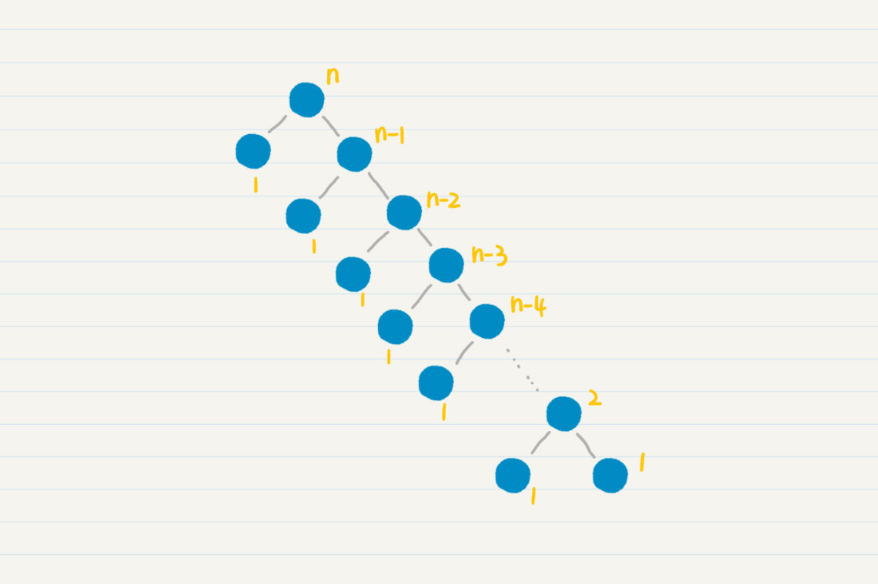 n
n-1
1
n-2
1
n-3
1
n-4
1
2
1
1
1